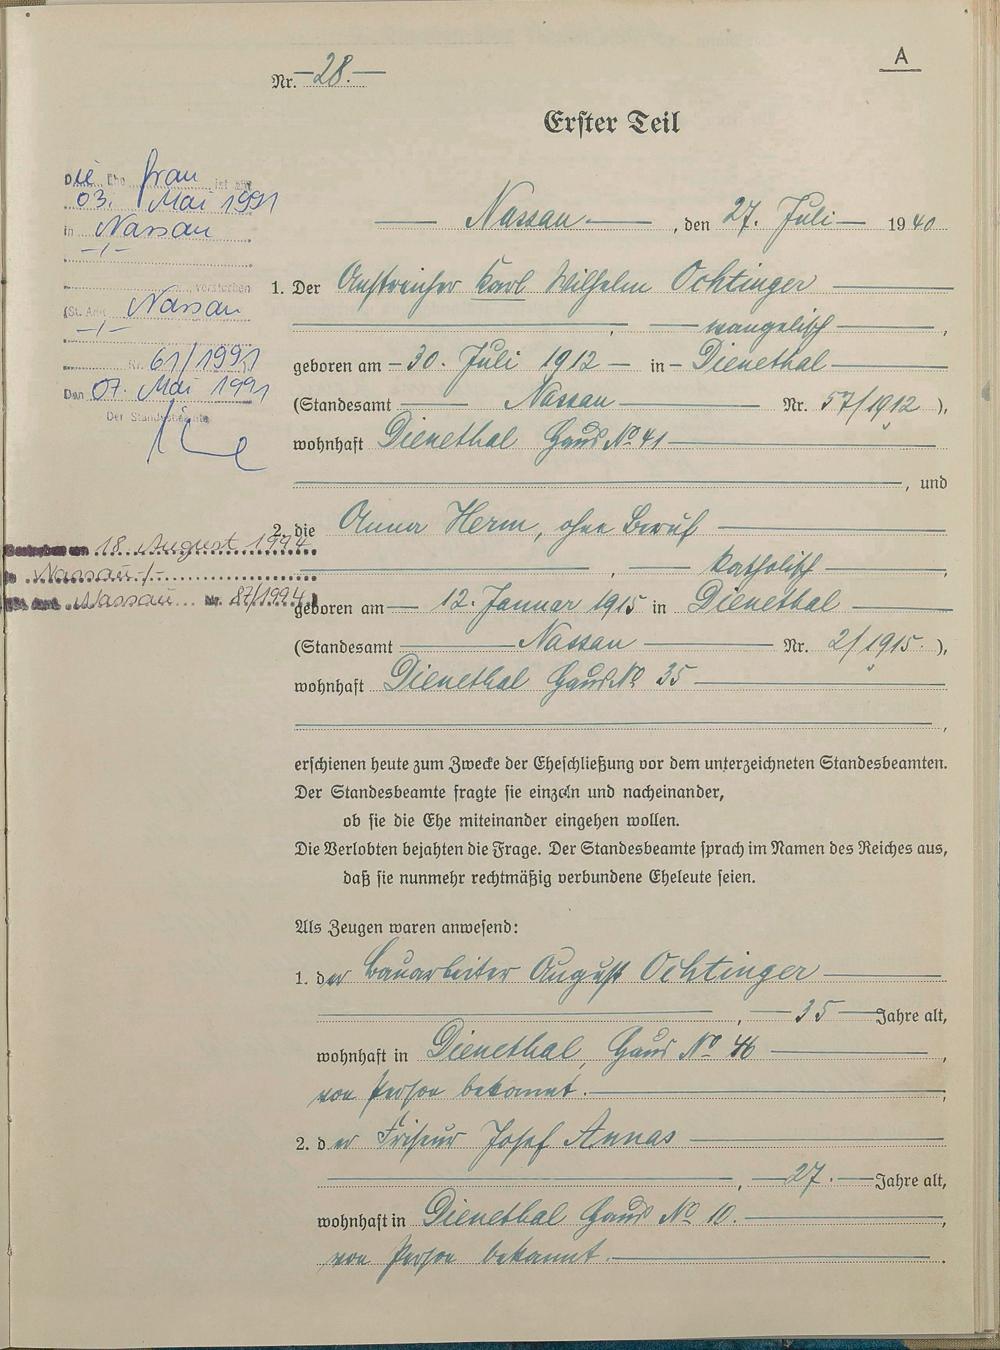 A
Nr. 28.
Erster Teil
Nassau, den 27. Juli 1940
1. Der Anstreicher Karl Wilhelm Ochtinger
, evangelisch,
geboren am 30. Juli 1912 in Dienethal
(Standesamt Nassau Nr. 57/1912),
wohnhaft Dienethal Haus No 41
, und
2. die Anna Herm, ohne Beruf
, katholisch,
geboren am 12. Januar 1915 in Dienethal
(Standesamt Nassau Nr. 2/1915.),
wohnhaft Dienethal Haus No 35
,
erschienen heute zum Zwecke der Eheschließung vor dem unterzeichneten Standesbeamten.
Der Standesbeamte fragte sie einzeln und nacheinander,
ob sie die Ehe miteinander eingehen wollen.
Die Verlobten bejahten die Frage. Der Standesbeamte sprach im Namen des Reiches aus,
daß sie nunmehr rechtmäßig verbundene Eheleute seien.
Als Zeugen waren anwesend:
1. der Bauarbeiter August Ochtinger
, 35 Jahre alt,
wohnhaft in Dienethal, Haus No 46,
von Person bekannt.
2. der Friseur Josef Annas
, 27. Jahre alt,
wohnhaft in Dienethal Haus No 10.,
von Person bekannt.
Die Ehefrau ist am
03. Mai 1991
in Nassau
-/-
verstorben
(St. Amt Nassau
-/-
Nr. 61/1991
Den 07. Mai 1991
Der Standesbeamte
Gestorben am 18. August 1994
in Nassau -/-
Sta. Amt Nassau Nr. 87/1994)